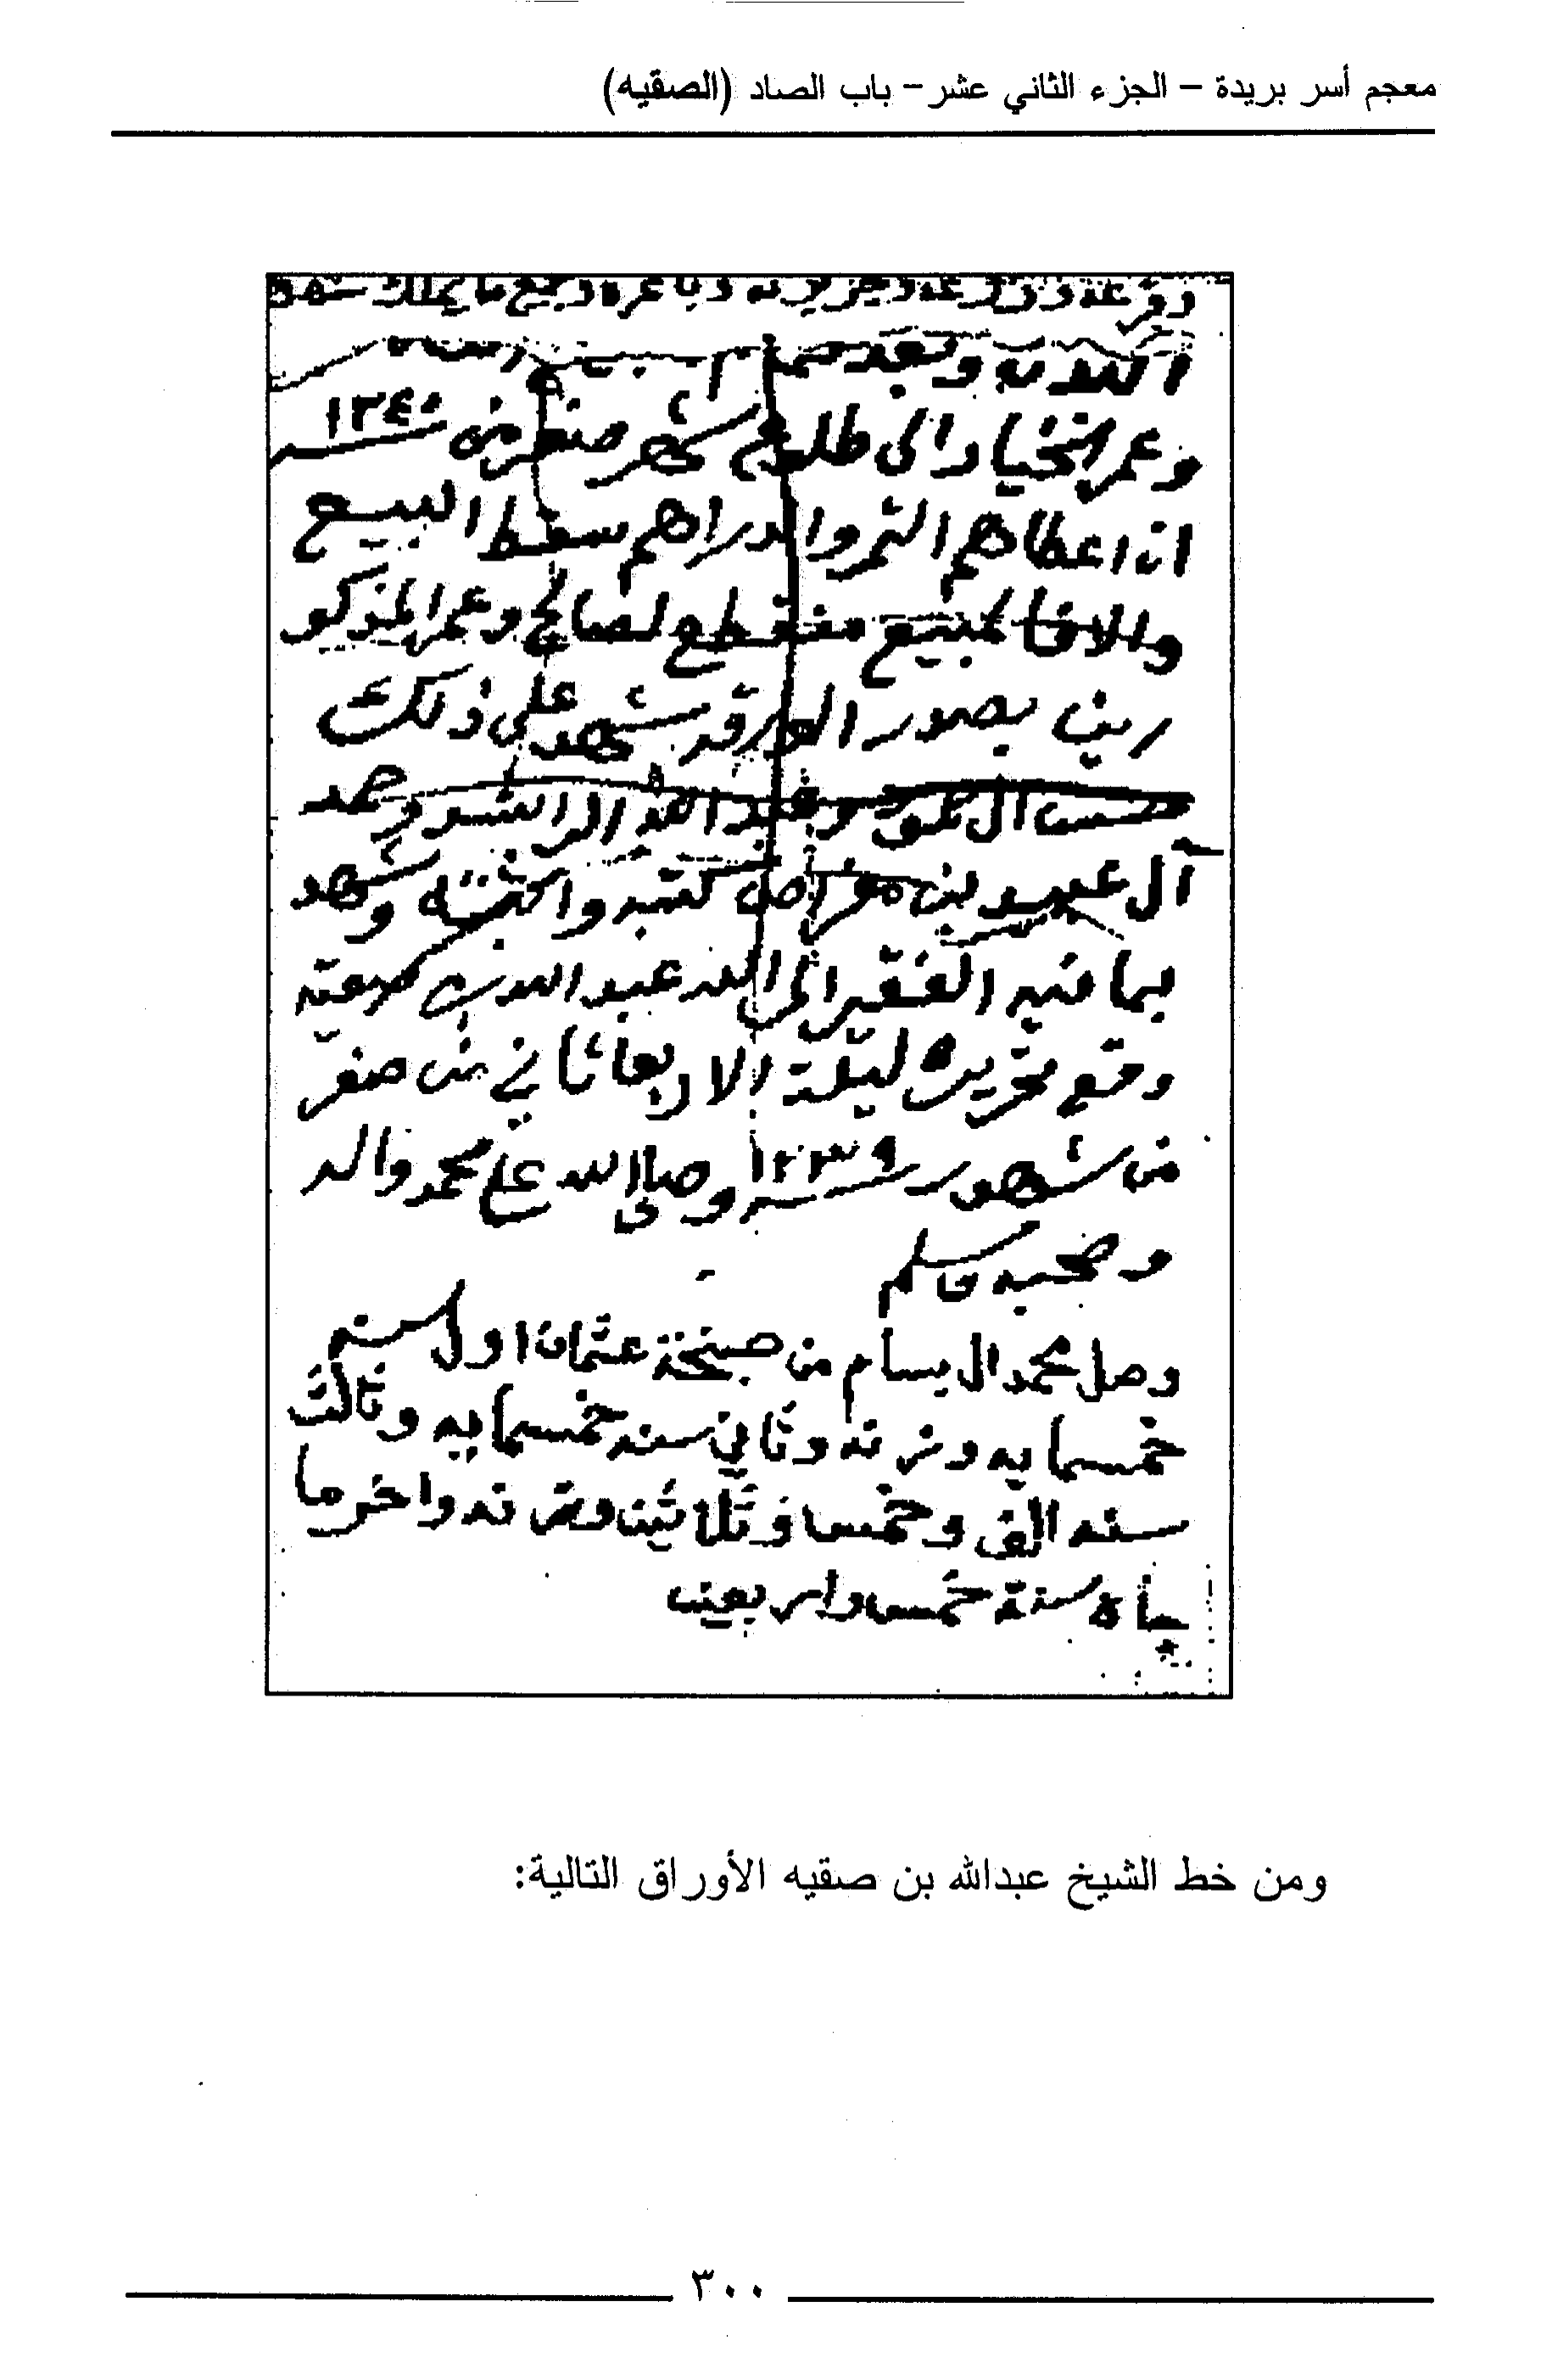 معجم أسر بريدة – الجزء الثاني عشر – باب الصاد (الصقيه)
وجميع ما يملك
وبعد
وعمر الخيار الى طلوع شهر صفر من سنة ١٢٤٠
ان اعطاهم الثمر والدراهم سقط البيع
والا فالمبيع منقطع لصالح وعمر المذكو
رين شهد على ذلك
وعبد الله الراشد وحمد
آل كتبه واثبته وشهد
بما فيه الفقير الى الله عبد الله بن صقيه
وقع تحريره ليلة الاربعا ثاني من صفر
من شهور سنة ١٢٣٩ وصلى الله على محمد واله
وصحبه وسلم
وصل محمد ال بسام من صبخة عثمان اول سنه
خمسمايه وزنه وثاني سنه خمسمايه وثالث
سنه الف وخمس وثلاثين وزنه واخر ما
جاه سنة خمس واربعين
ومن خط الشيخ عبدالله بن صقيه الأوراق التالية:
٣٠٠